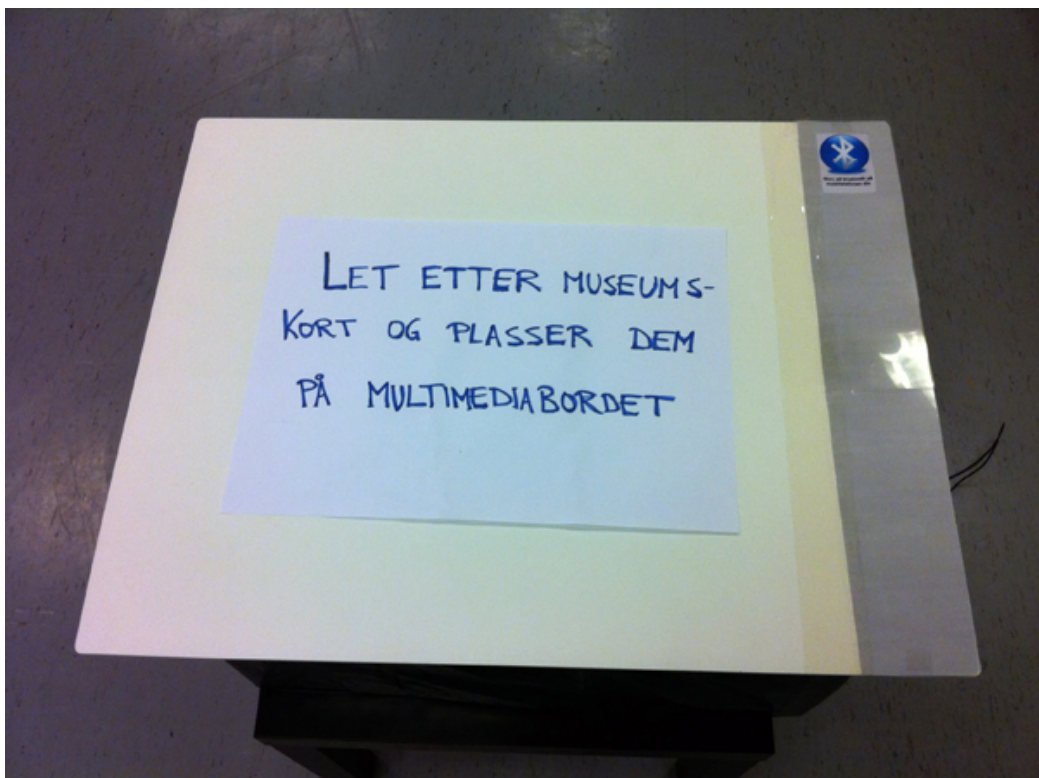 LET ETTER MUSEUMS-
KORT OG PLASSER DEM
PÅ MULTIMEDIABORDET